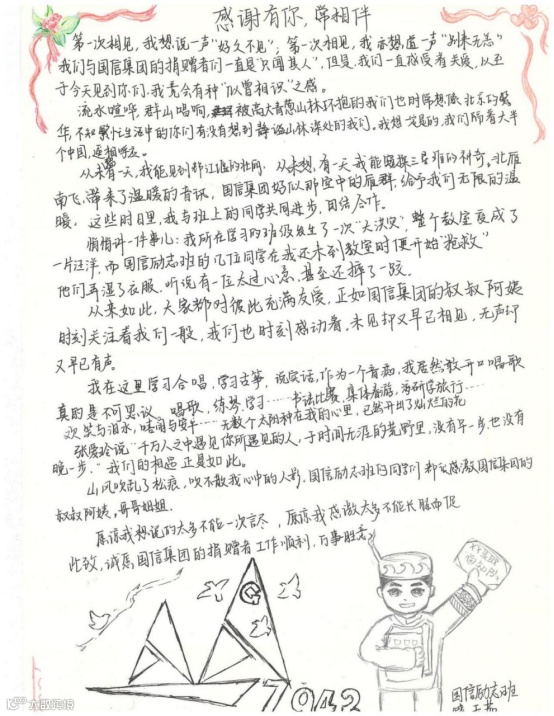 感谢有你,常相伴
第一次相见,我想说一声“好久不见”,第一次相见,我亦想道一声“别来无恙”
我们与国信集团的捐赠者们一直是“只闻其人”,但是我们一直感受着关爱,以至
于今天见到你们,我竟会有种“似曾相识”之感。
流水喧哗,群山唱响,被高大青葱山林环抱的我们也时常想
华,不知生活中的你们有没有想到静谧山林深处的我们。我想是的,我们隔着大半
个中国,遥相呼应。
从未有一天,我能见到都江堰的壮阔,从未想,有一天我能三星堆的神奇。北雁
南飞,带来了温暖的音讯,国信集团好似那空中的雁群,给予我们无限的温
暖,这些时日里,我与班上的同学共同进步,团结合作。
悄悄讲一件事儿:我所在学习的班级发生了一次“大洪灾”,整个教室变成了
一片汪洋,而国信励志班的几位同学在我还未到教室时便开始“抢救”
他们弄湿了衣服,听说有一位太过心急,甚至还摔了一跤。
从来如此,大家都对彼此充满友爱,正如国信集团的叔叔阿姨
时刻关注着我们一般,我们也时刻感动着。未见却又早已相见,无声却
又早已有声。
我在这里学习合唱,学习古筝,说实话,作为一个音痴,我居然敢开口唱歌
真的是不可思议。唱歌,练琴,学习……书法比赛,集体春游,研学旅行……
欢笑与泪水,……无数个太阳种在我的心里,已然开出了灿烂的花
张爱玲说“千万人之中遇见你所遇见的人,于时间无涯的荒野里,没有早一步也没有
晚一步。”我们的相遇正是如此。
山风吹乱了松痕,吹不散我心中的人影。国信励志班的同学们都感激国信集团的
叔叔阿姨,哥哥姐姐。
原谅我想说的太多不能一次言尽,原谅我感激太多不能长
此致,诚愿国信集团的捐赠者工作顺利,万事胜意
7942
国信励志班